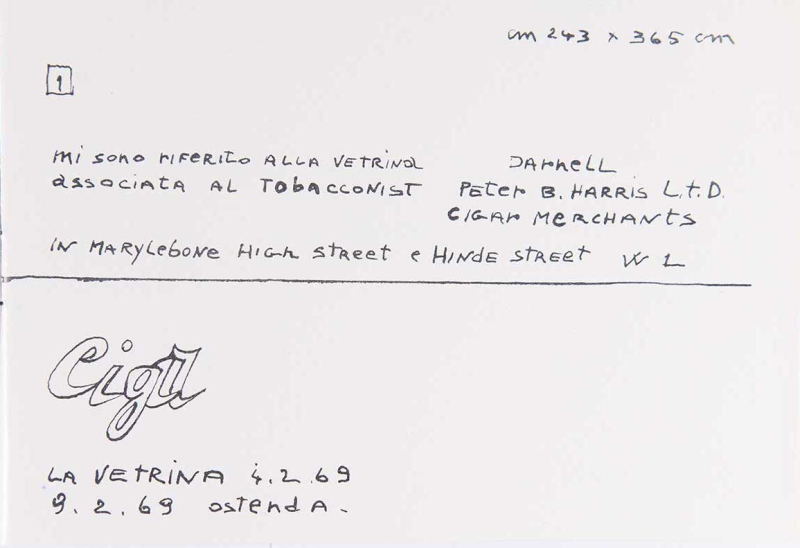 cm 243 x 365 cm
1
mi sono riferito ALLA VETRINA DArnELL
associATA AL TobaccONIST PETer B. HARRIS L.t.D.
CIGAr MERCHANTS
IN MARYLebONE HIGh STReet e HINDE STREET W 1
LA VETRINA 4.2.69
9.2.69 ostendA.